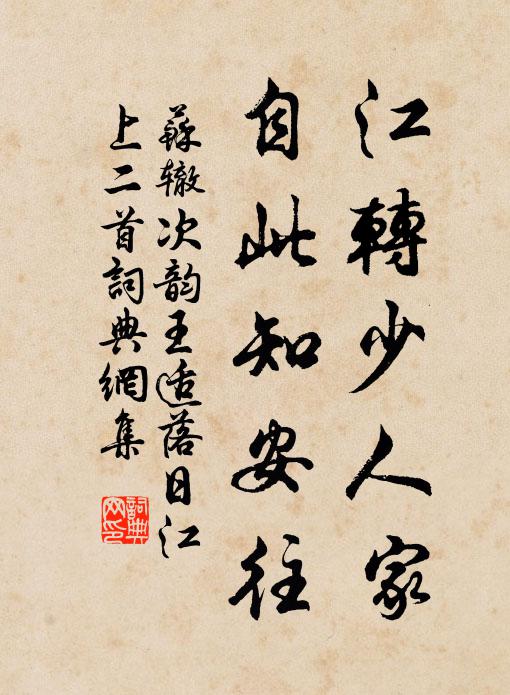 江轉少人家
自此知安往
蘇辙次韵王适落日江
上二首詞典網集
詞典网印